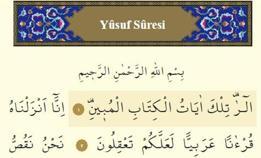 Yûsuf Sûresi
بِسْمِ اللّٰهِ الرَّحْمٰنِ الرَّحِيمِ
الٓرٰ تِلْكَ اٰيَاتُ الْكِتَابِ الْمُبٖينِ ١ اِنَّٓا اَنْزَلْنَاهُ
قُرْءٰنًا عَرَبِيًّا لَعَلَّكُمْ تَعْقِلُونَ ٢ نَحْنُ نَقُصُّ